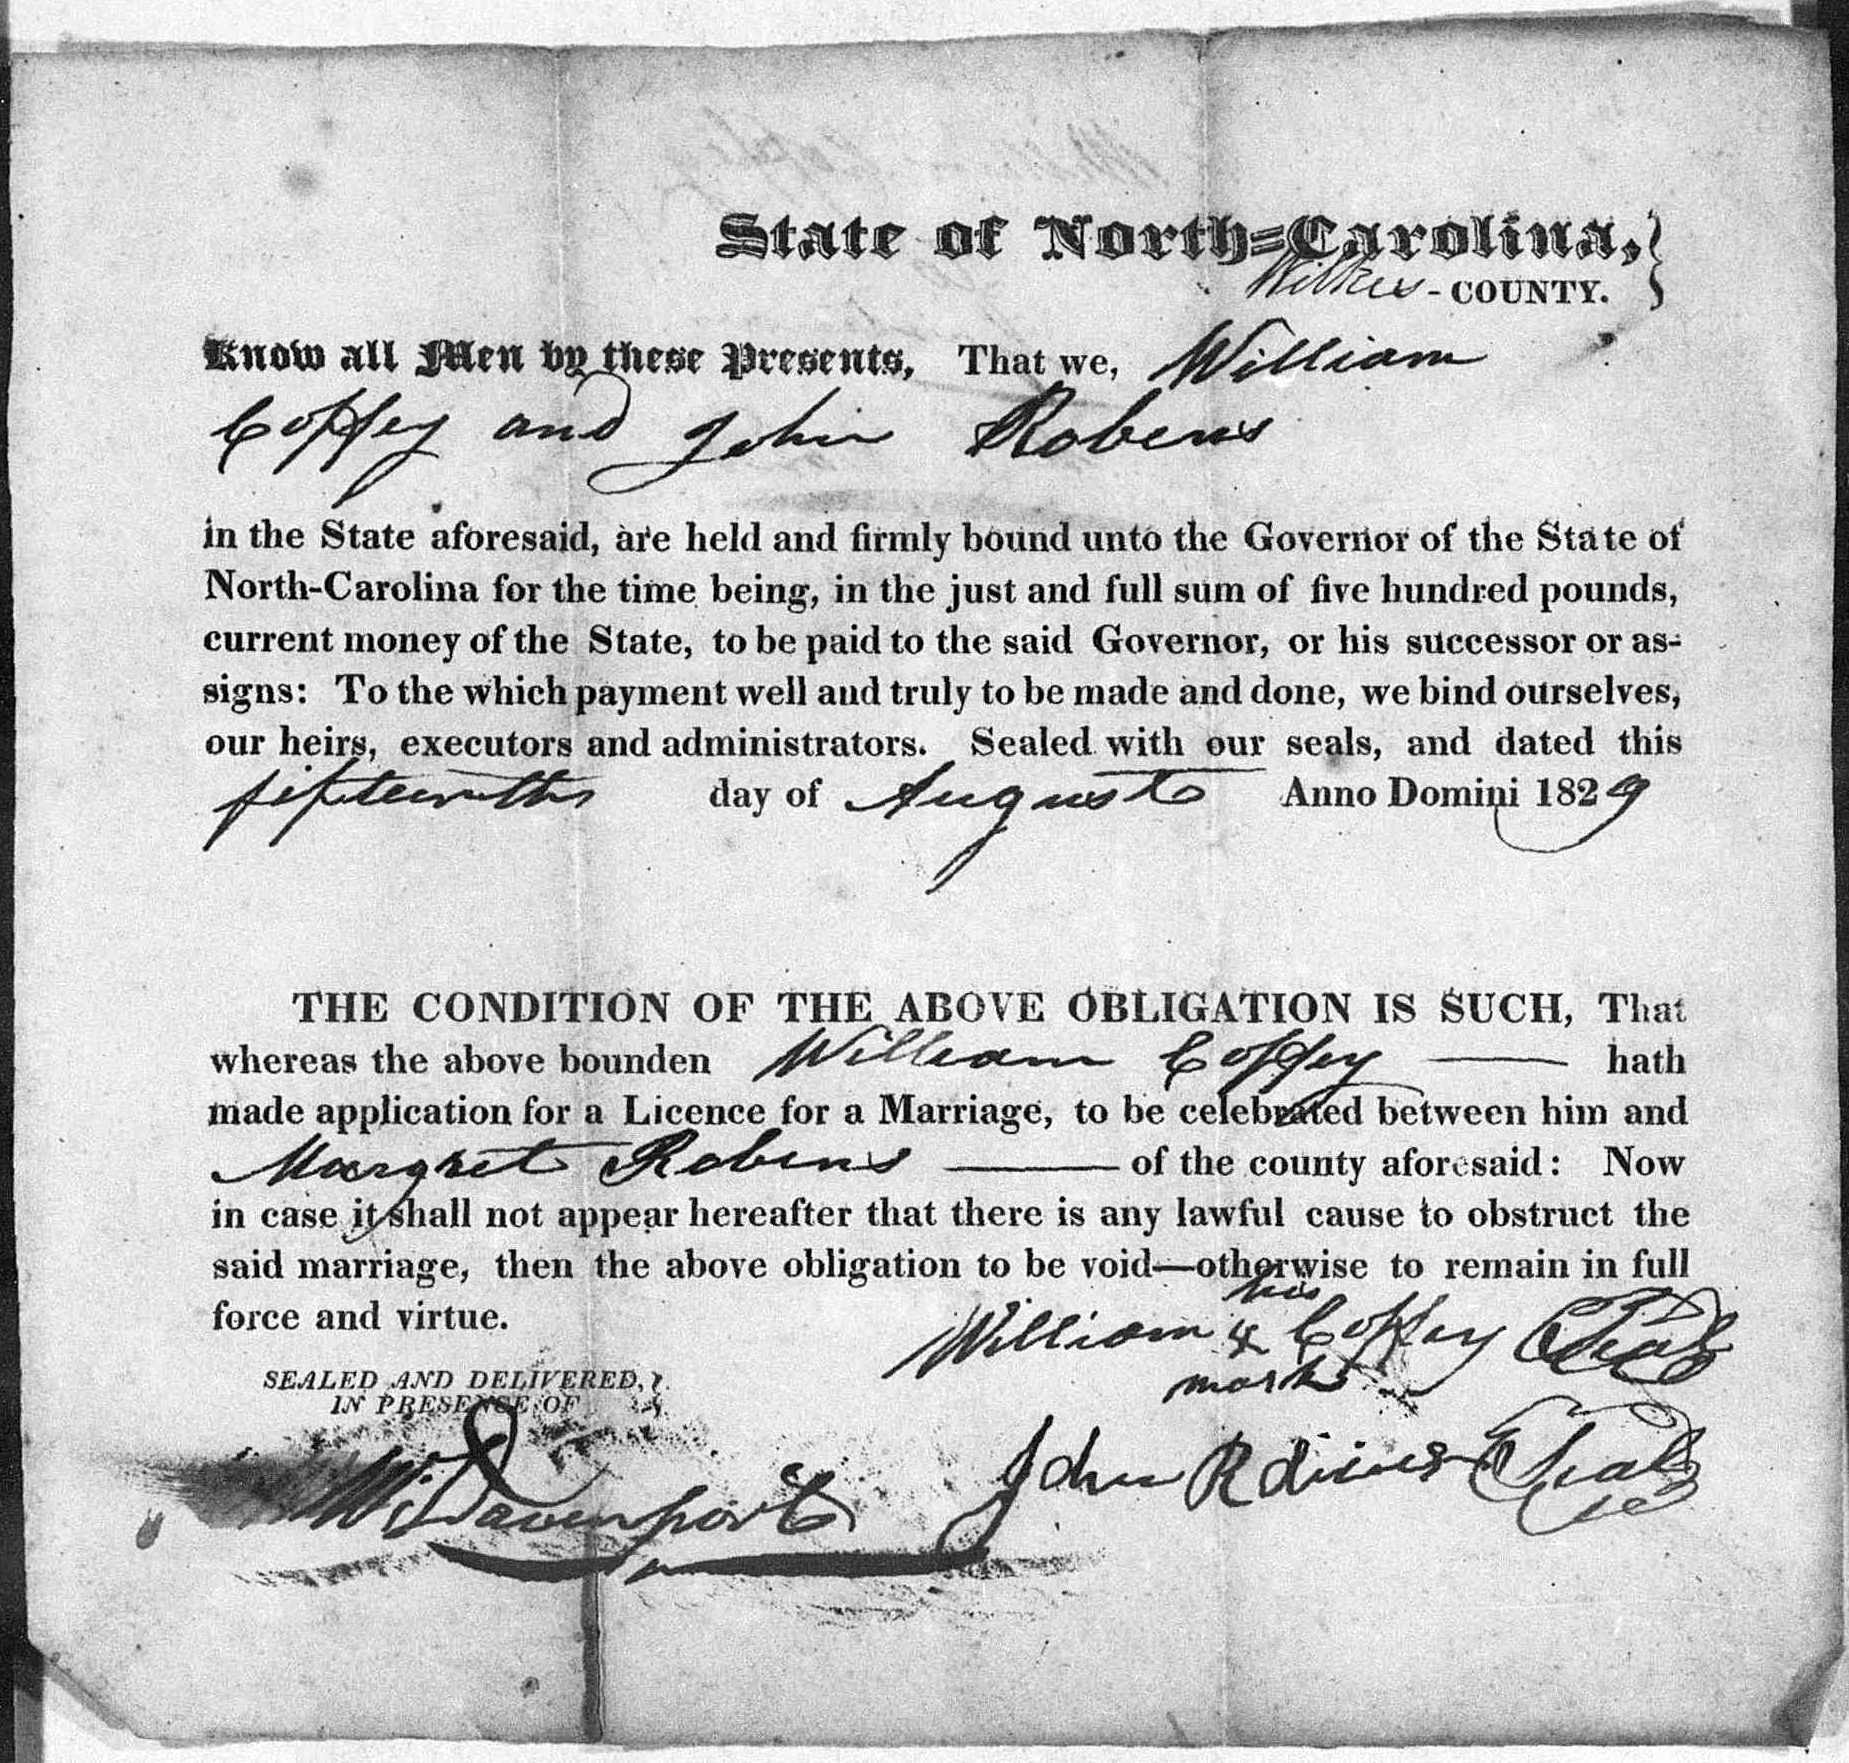 State of North-Carolina,
Wilkes - COUNTY.
Know all Men by these Presents, That we, William
Coffey and John Robens
in the State aforesaid, are held and firmly bound unto the Governor of the State of
North-Carolina for the time being, in the just and full sum of five hundred pounds,
current money of the State, to be paid to the said Governor, or his successor or as-
signs: To the which payment well and truly to be made and done, we bind ourselves,
our heirs, executors and administrators. Sealed with our seals, and dated this
fifteenth day of August Anno Domini 1829
THE CONDITION OF THE ABOVE OBLIGATION IS SUCH, That
whereas the above bounden William Coffey — hath
made application for a Licence for a Marriage, to be celebrated between him and
Margret Robens — of the county aforesaid: Now
in case it shall not appear hereafter that there is any lawful cause to obstruct the
said marriage, then the above obligation to be void—otherwise to remain in full
force and virtue.
his
William X Coffey Seal
mark
SEALED AND DELIVERED,
IN PRESENCE OF
W. Davenport
John Seal